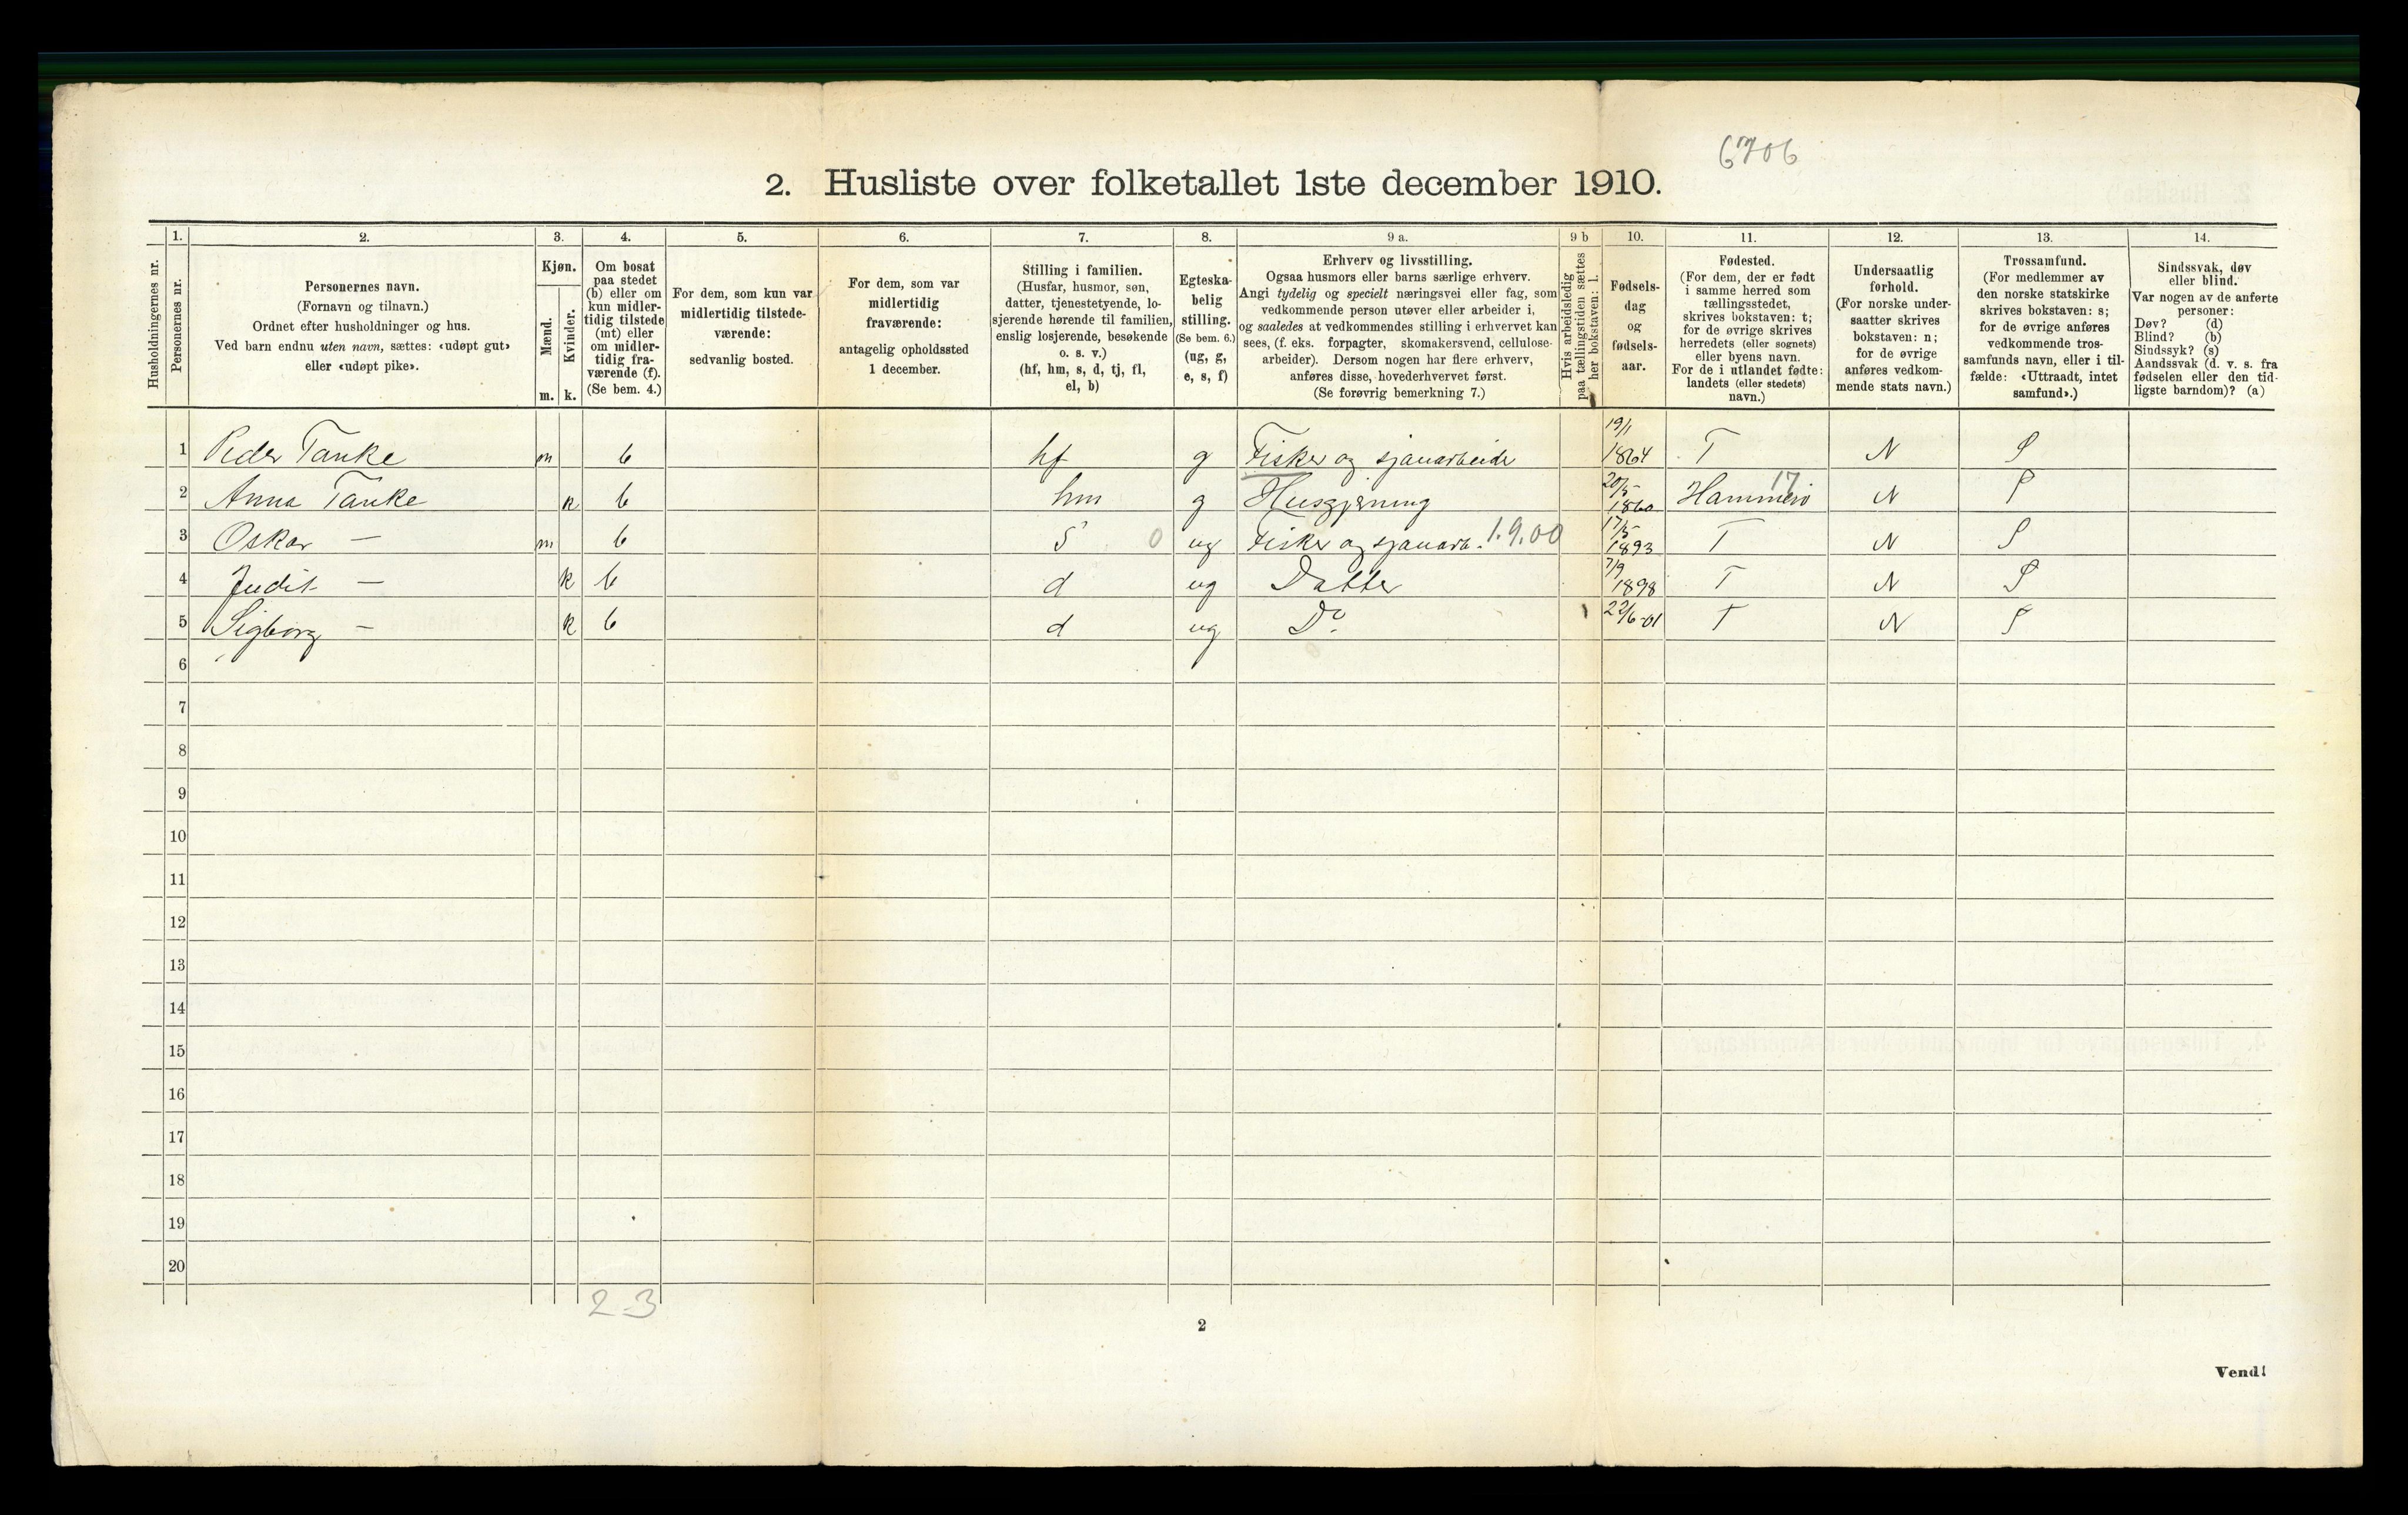 6706
2. Husliste over folketallet 1ste december 1910.
Husholdningernes nr.
1.
Personernes nr.
2.
Personernes navn.
(Fornavn og tilnavn.)
Ordnet efter husholdninger og hus.
Ved barn endnu uten navn, sættes: «udøpt gut»
eller «udøpt pike».
3.
Kjøn.
Mænd.
Kvinder.
m. k.
4.
Om bosat
paa stedet
(b) eller om
kun midler-
tidig tilstede
(mt) eller
om midler-
tidig fra-
værende (f).
(Se bem. 4.)
5.
For dem, som kun var
midlertidig tilstede-
værende:
sedvanlig bosted.
6.
For dem, som var
midlertidig
fraværende:
antagelig opholdssted
1 december.
7.
Stilling i familien.
(Husfar, husmor, søn,
datter, tjenestetyende, lo-
sjerende hørende til familien,
enslig losjerende, besøkende
o. s. v.)
(hf, hm, s, d, tj, fl,
el, b)
8.
Egteska-
belig
stilling.
(Se bem. 6.)
(ug, g,
e, s, f)
9 a.
Erhverv og livsstilling.
Ogsaa husmors eller barns særlige erhverv.
Angi tydelig og specielt næringsvei eller fag, som
vedkommende person utøver eller arbeider i,
og saaledes at vedkommendes stilling i erhvervet kan
sees, (f. eks. forpagter, skomakersvend, cellulose-
arbeider). Dersom nogen har flere erhverv,
anføres disse, hovederhvervet først.
(Se forøvrig bemerkning 7.)
9 b
Hvis arbeidsledig
paa tællingstiden sættes
her bokstaven: l.
10.
Fødsels-
dag
og
fødsels-
aar.
11.
Fødested.
(For dem, der er født
i samme herred som
tællingsstedet,
skrives bokstaven: t;
for de øvrige skrives
herredets (eller sognets)
eller byens navn.
For de i utlandet fødte:
landets (eller stedets)
navn.)
12.
Undersaatlig
forhold.
(For norske under-
saatter skrives
bokstaven: n;
for de øvrige
anføres vedkom-
mende stats navn.)
13.
Trossamfund.
(For medlemmer av
den norske statskirke
skrives bokstaven: s;
for de øvrige anføres
vedkommende tros-
samfunds navn, eller i til-
fælde: «Uttraadt, intet
samfund».)
14.
Sindssvak, døv
eller blind.
Var nogen av de anførte
personer:
Døv? (d)
Blind? (b)
Sindssyk? (s)
Aandssvak (d. v. s. fra
fødselen eller den tid-
ligste barndom)? (a)
1 Peder Tanke m b hf g Fisker og sjauarbeide 19/1 1864 T N S
2 Anna Tanke k b hm g Husgjerning 20/5- 1860 Hammerø 17 N S
3 Oskar — m b S 0 ug Fisker og sjauarb. 1.9.00 17/5- 1893 T N S
4 Judit — k b d ug Datter 7/9 1898 T N S
5 Sigborg — k b d ug Do. 22/6-01 T N S
6
7
8
9
10
11
12
13
14
15
16
17
18
19
20
2-3
2
Vend!